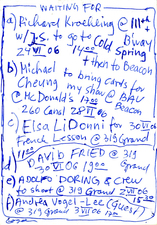 WAITING FOR
a) Richard Kroehling @ 111th
w/ J.S. to go to Cold Spring
24 VI 06 14 00 + then to Beacon
b) Michael to bring cards for
Cheung my show @ BAU
@ McDonald's 17 00 Beacon
260 Canal 28 VI 06
c) Elsa LiDonni for 30 VI 06
French Lesson @ 319 Grand
d) DAVID FRIED @ 319
11 00 30 VI 06 19 00 Grand
e) ADOLFO DORING & CREW
to shoot @ 319 Grand 2 VII 06
f) Andrea Vogel-Lee (Guest)
@ 319 Grand 3 VII 06